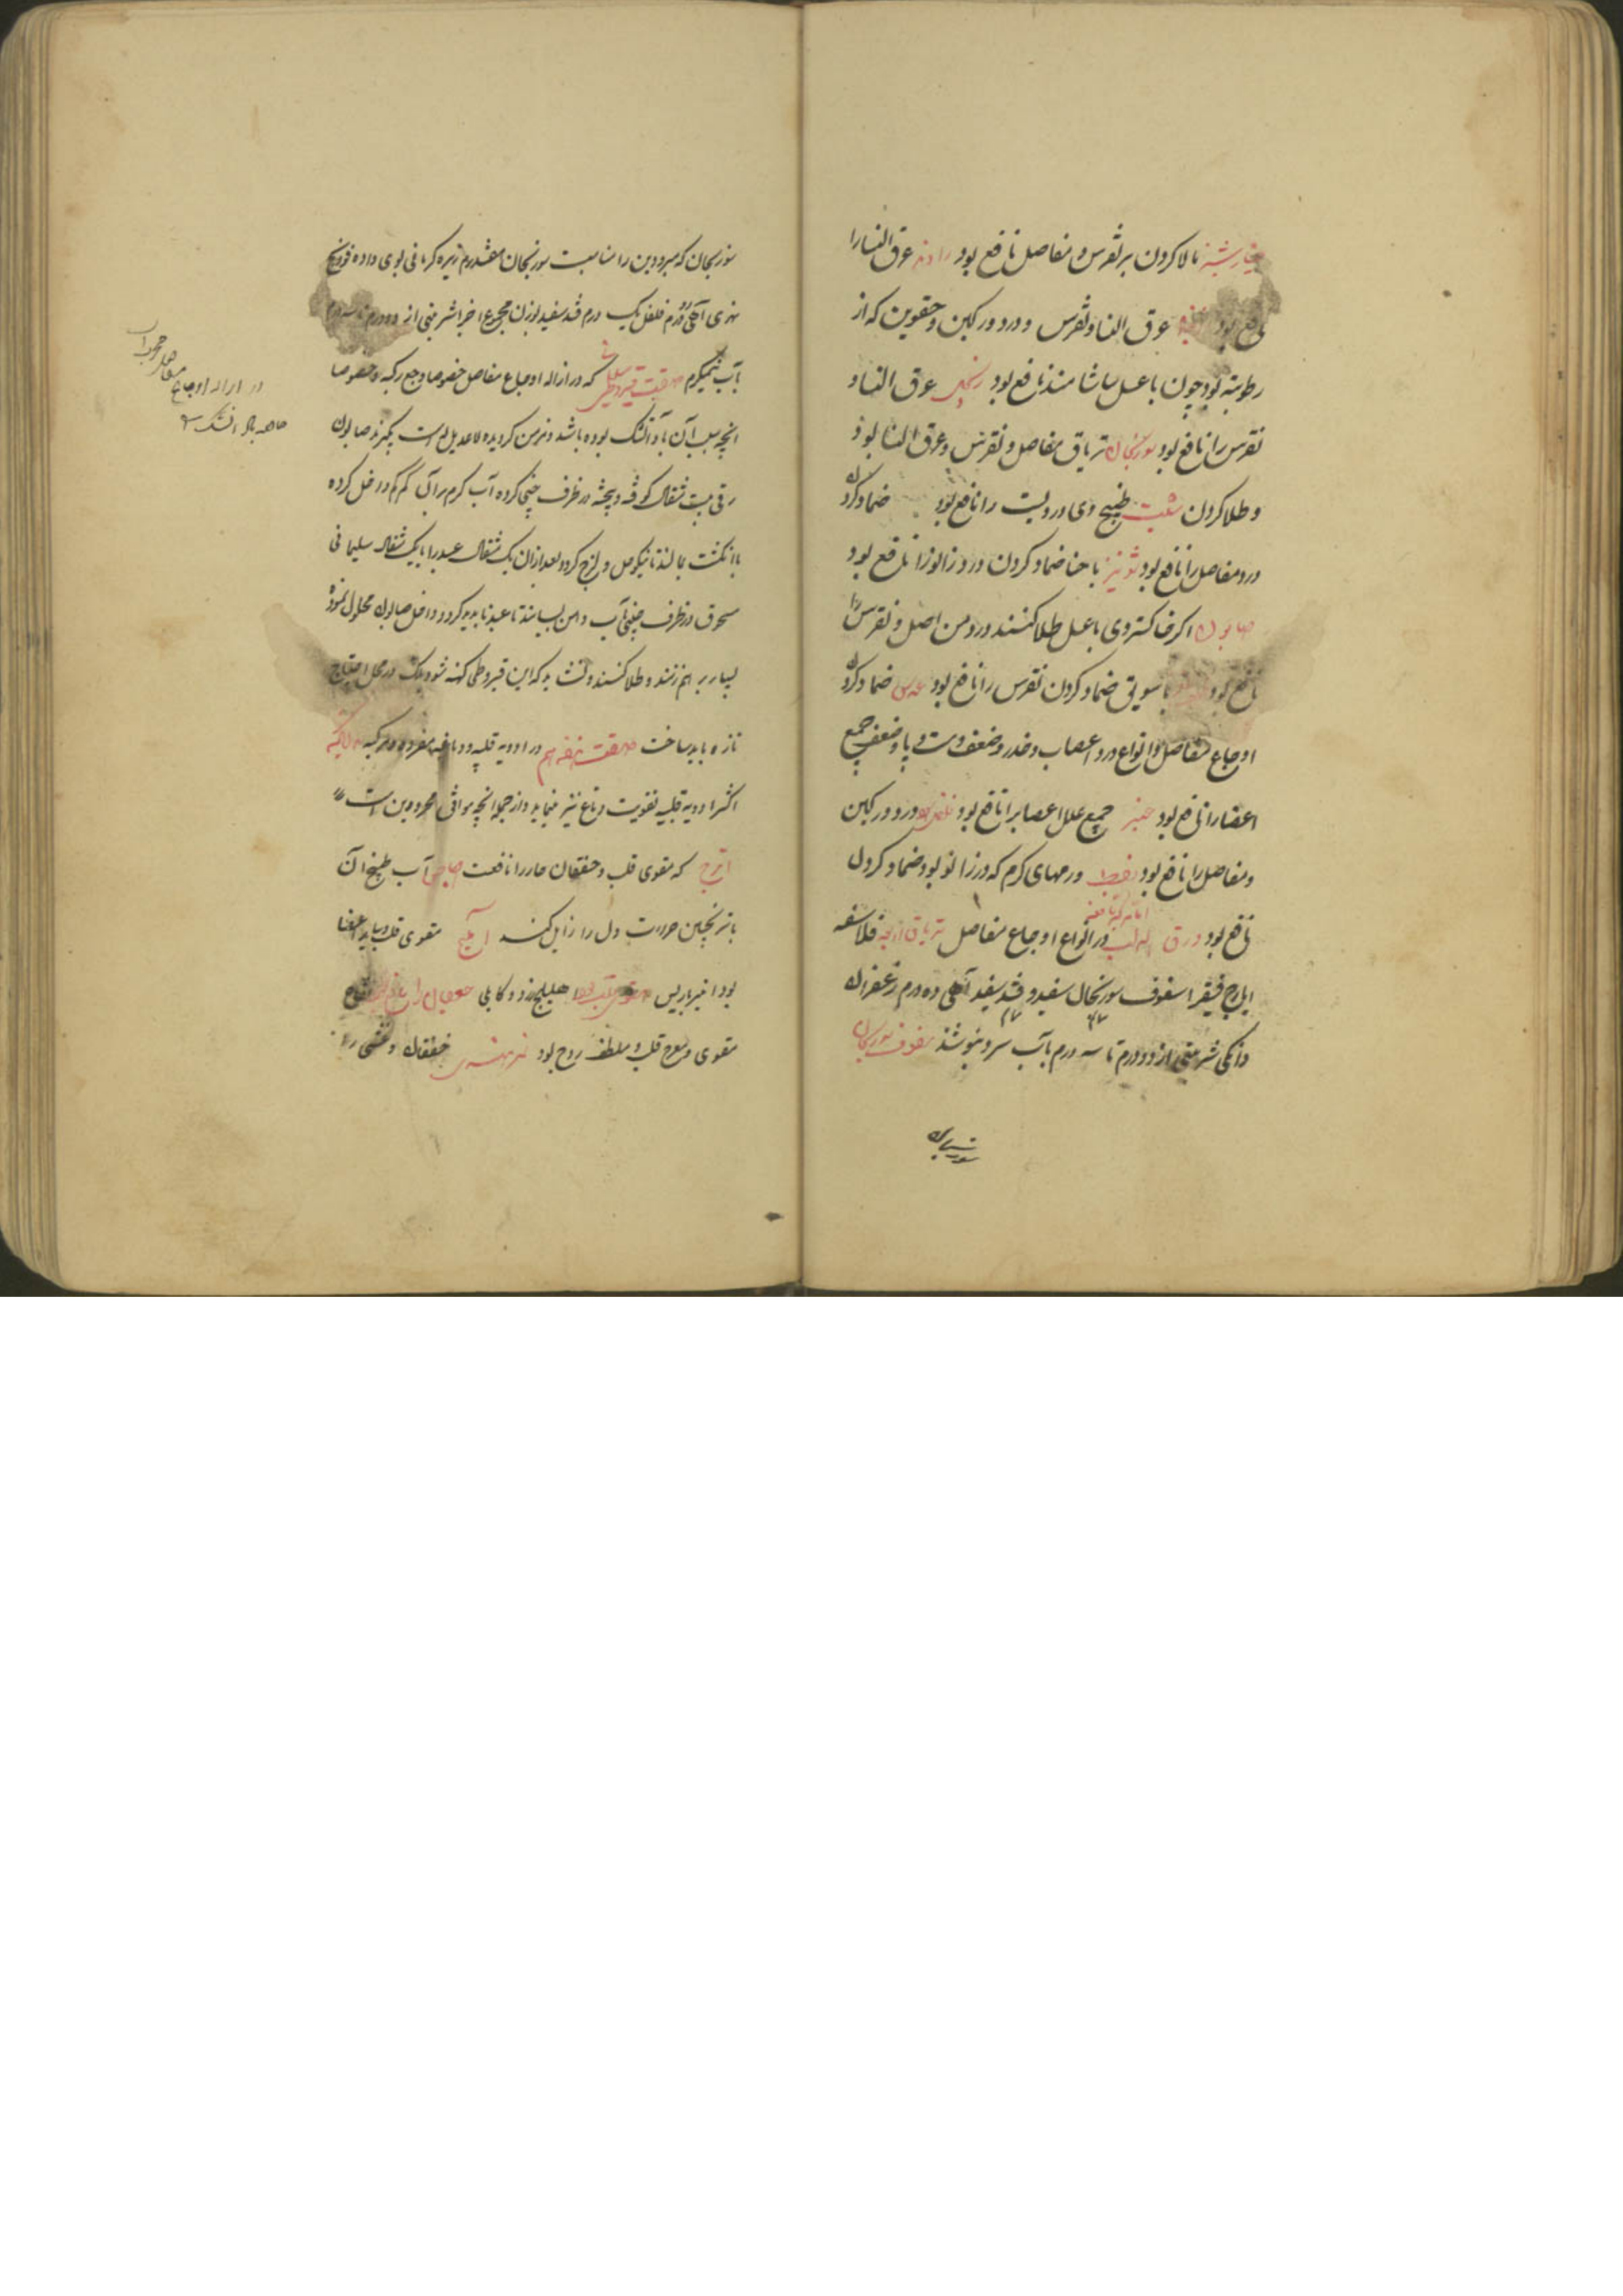 خیارشنبر طلا کردن بر نقرس و مفاصل نافع بود راوند عرق النسا را
نافع بود عرق النسا و نقرس و درد ورکین و حقوین که از
رطوبة بود چون با عسل بیاشامند نافع بود زنجبیل عرق النسا و
نقرس را نافع بود سورنجان تریاق مفاصل و نقرس و عرق النسا بود
و طلا کردن شبت طبیخ وی درد پشت را نافع بود ضماد کردن
درد مفاصل را نافع بود شونیز با حنا ضماد کردن درد زانو را نافع بود
صابون اگر خاکستر وی با عسل طلا کنند درد مفاصل و نقرس را
نافع بود با سویق ضماد کردن نقرس را نافع بود عدس ضماد کردن
اوجاع مفاصل و انواع درد اعصاب و خدر و ضعف دست و پا و ضعف جمیع
اعضا را نافع بود جمیع علل اعصاب را نافع بود درد ورکین
و مفاصل را نافع بود نفط ورمهای گرم که در زانو بود ضماد کردن
نافع بود ورق در انواع اوجاع مفاصل تریاق اربعه فلاسفه
ایارج فیقرا سفوف سورنجان سفید و قند سفید ده درم زعفران
دانکی شربتی از دو درم تا سه درم بآب سرد بنوشند سفوف سورنجان
سورنجان
سورنجان که مبرودین را مناسبت سورنجان هفتدرم زیره کرمانی بوی داده فودنج
نهری فلفل یک درم قند سفید بوزن مجموع اجزا شربتی از دو درم تا سه درم
بآب نیمگرم صفت قیروطی که در ازاله اوجاع مفاصل خصوصا وجع رکبه و خصوصا
انچه بسبب آن باد آتشک بوده باشد و مزمن گردیده لاعدیل است بگیرند صابون
رقی بیست مثقال کوفته و پخته در ظرف چینی کرده آب گرم بر آن کم کم داخل کرده
با انگشت بمالند تا نیکو حل و لزج گردد بعد از آن یک مثقال را با یک مثقال سلیمانی
مسحوق در ظرف چینی آب دهن بسایند تا ناپدید گردد داخل صابون محلول نموده
بسیار بر هم زنند و طلا کنند و که این قیروطی کهنه شود در محل احتیاج
تازه باید ساخت در ادویه قلبیه و دماغیه مفرده و مرکبه
اکثر ادویه قلبیه تقویت دماغ نیز مینماید و از جمله انچه موافق محرورین است
اترج که مقوی قلب و خفقان حار را نافعست اجاص آب طبیخ آن
با ترنجبین حرارت دل را زایل کند آملج مقوی قلب و سایر اعضا
بود انبرباریس هلیله زرد و کابلی تفاح
مقوی و مفرح قلب و ملطف روح بود تمر هندی خفقان و غشی را
در ازاله اوجاع مفاصل مجرب است
خاصه باد آتشک